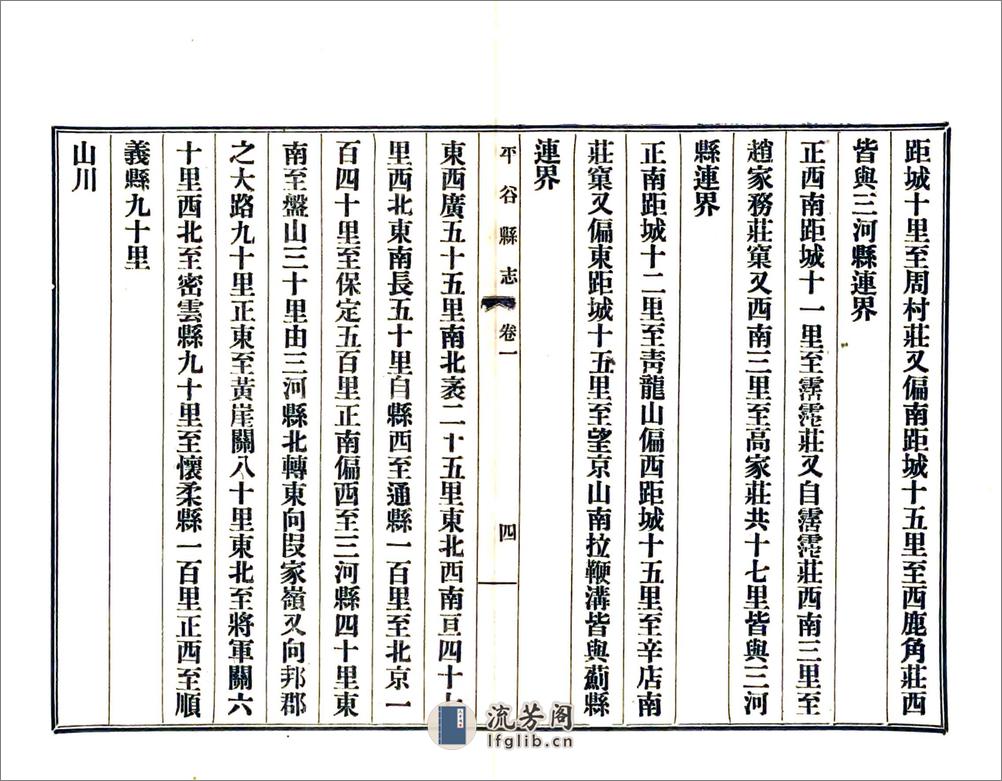 距城十里至周村莊又偏南距城十五里至西鹿角莊西
皆與三河縣連界
正西南距城十一里至霱霱莊又自霱霱莊西南三里至
趙家務莊窠又西南三里至高家莊共十七里皆與三河
縣連界
正南距城十二里至靑龍山偏西距城十五里至辛店南
莊窠又偏東距城十五里至望京山南拉鞭溝皆與薊縣
連界
平谷縣志 卷一 四
東西廣五十五里南北袤二十五里東北西南亘四十七
里西北東南長五十里自縣西至通縣一百里至北京一
百四十里至保定五百里正南偏西至三河縣四十里東
南至盤山三十里由三河縣北轉東向段家嶺又向邦郡
之大路九十里正東至黃崖關八十里東北至將軍關六
十里西北至密雲縣九十里至懷柔縣一百里正西至順
義縣九十里
山川
流芳阁
lfglib.cn